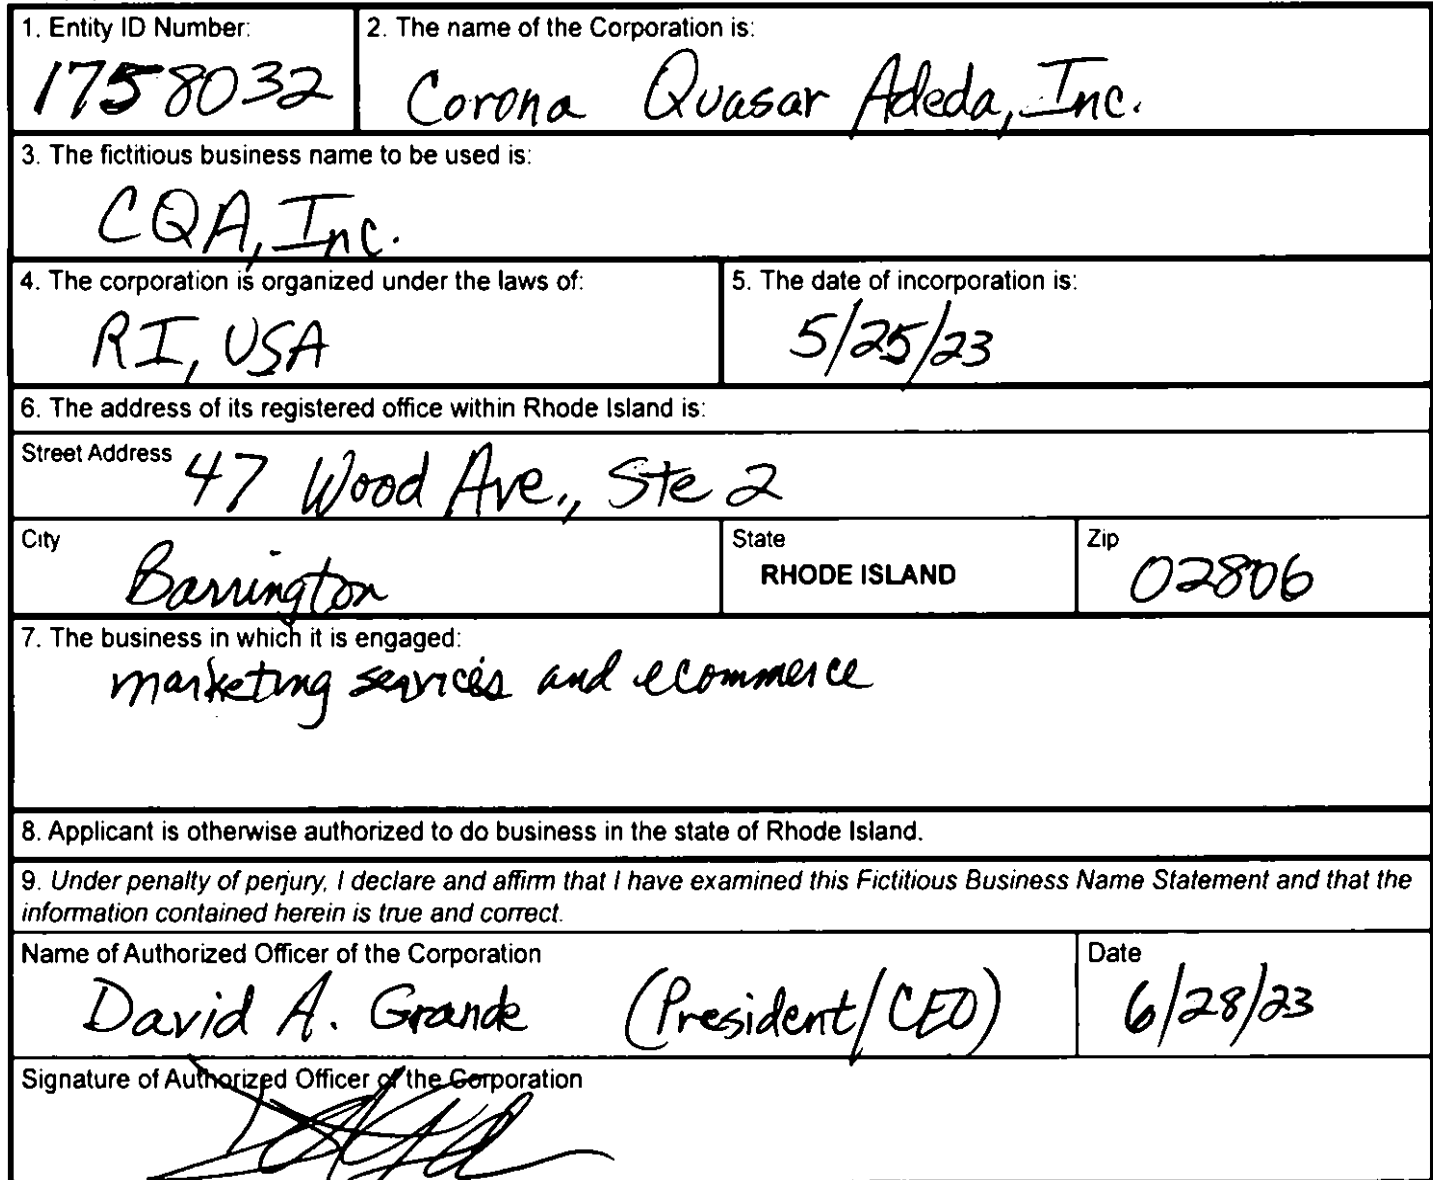 1. Entity ID Number:
1758032
2. The name of the Corporation is:
Corona Quasar Adeda, Inc.
3. The fictitious business name to be used is:
CQA, Inc.
4. The corporation is organized under the laws of:
RI, USA
5. The date of incorporation is:
5/25/23
6. The address of its registered office within Rhode Island is:
Street Address 47 Wood Ave., Ste 2
City
Barrington
State
RHODE ISLAND
Zip
02806
7. The business in which it is engaged:
marketing services and ecommerce
8. Applicant is otherwise authorized to do business in the state of Rhode Island.
9. Under penalty of perjury, I declare and affirm that I have examined this Fictitious Business Name Statement and that the
information contained herein is true and correct.
Name of Authorized Officer of the Corporation
David A. Grande (President/CEO)
Date
6/28/23
Signature of Authorized Officer of the Corporation